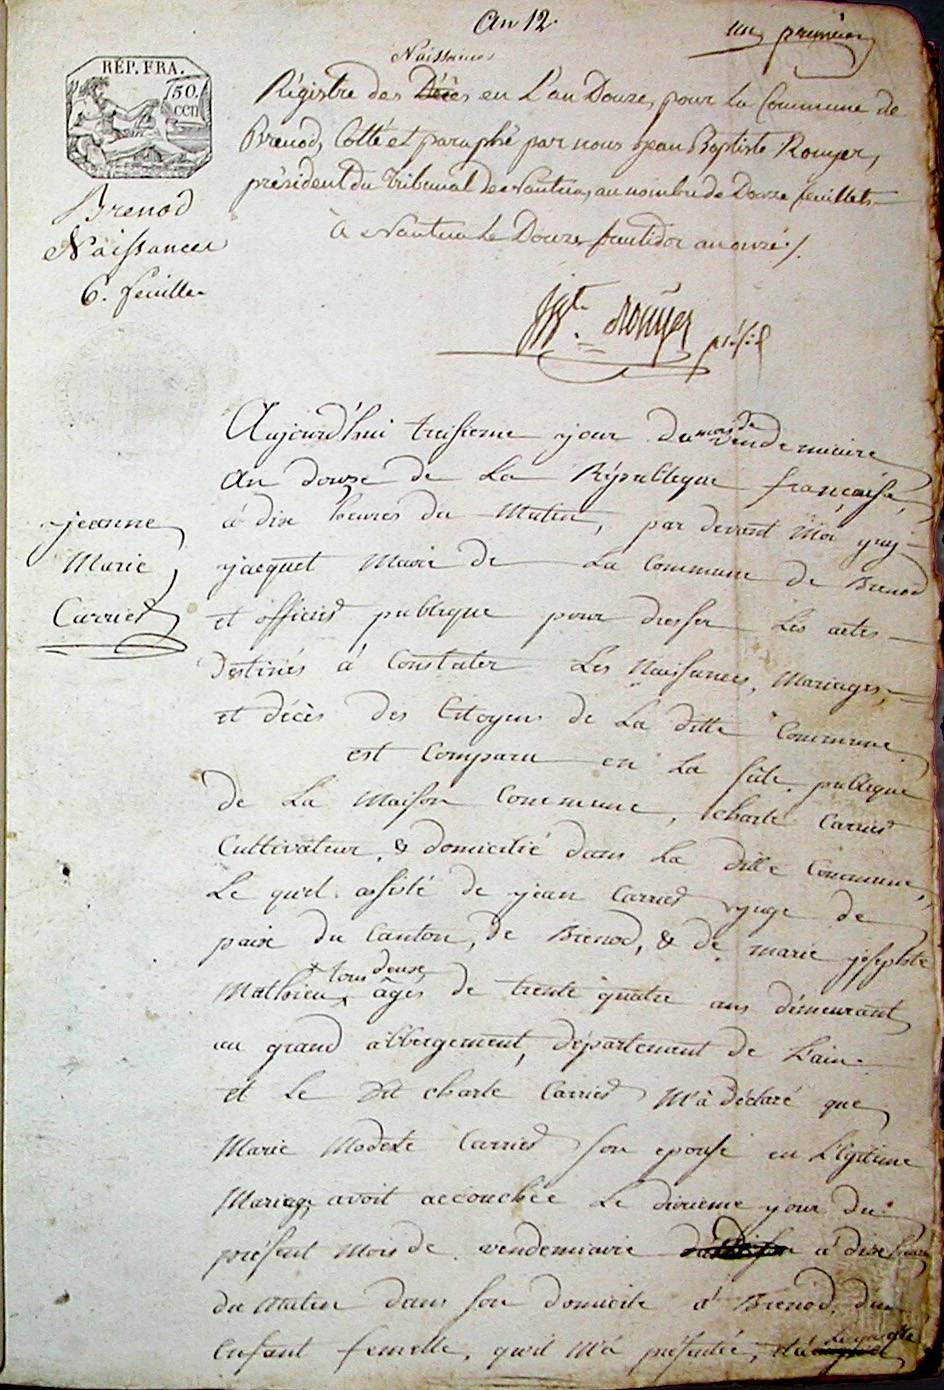 An 12.
un premier
RÉP. FRA.
50.
cen
Naissances
Régistre des Décès en L'an Douze, pour La Commune de
Brenod, Cotté et paraphé par nous Jean Baptiste Rouyer,
président du Tribunal de Nantua, au nombre de Douze feuillets
à Nantua Le Douze fructidor an onze ./.
Brenod
Naissances
6. feuille
Rouyer présid
Aujourd'hui treisieme jour du mois de vendemiaire
An douze de La République française,
à dix heures du Matin, par devant Moi
jacquet Maire de La Commune de Brenod
et officier publique pour dresser Les actes
Destinés à Constater Les Naissances, Mariages,
et décès des Citoyens de La ditte Commune
est Comparu en La sale publique
de La Maison Commune, charle Carrier
Cultivateur, & domicilié dans La ditte Commune,
Le quel assisté de jean Carrier juge de
paix du Canton, de Brenod, & de marie josephte
Mathieu, tous deux âgés de trente quatre ans démeurant
au grand abbergement, département de L'ain
et Le dit charle Carrier M'à déclaré que
Marie Modeste Carrier son epouse en Légitime
Mariage, avoit accouchée Le dixieme jour du
présent Mois de vendemiaire à dix heures
du Matin dans son domicile à Brenod, d'un
Enfant femelle, qu'il M'à présentée,
jeanne
Marie
Carrier